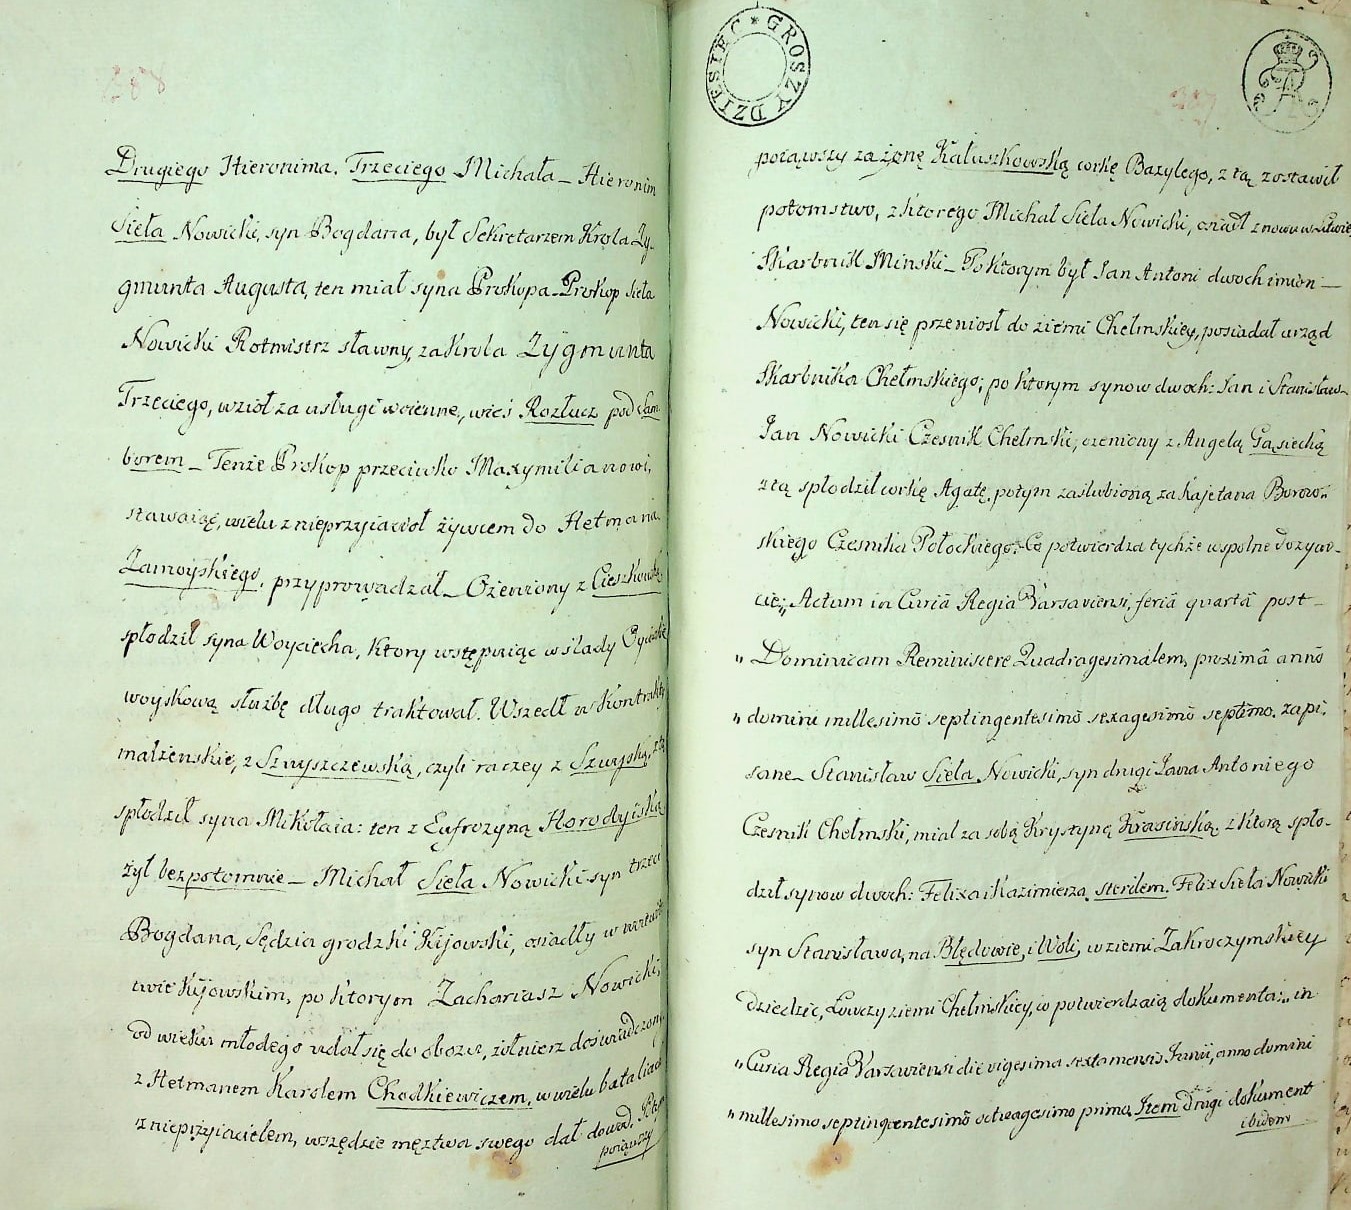 288
Drugiego Hieronima. Trzeciego Michała – Hieronim
Sieła Nowicki, syn Bogdana, był Sekretarzem Krola Zy-
gmunta Augusta, ten miał syna Prokopa – Prokop Sieła
Nowicki Rotmistrz sławny, za Krola Zygmunta
Trzeciego, wziół za usługi woienne, wieś Rozłucz pod Sam
borem – Tenże Prokop przeciwko Maxymilianowi,
stawaiąc, wielu z nieprzyiacioł żywcem do Hetmana
Zamoyskiego, przyprowadzał – Ożeniony z Cieszkowską
spłodził syna Woyciecha, ktory wstępuiąc w ślady Oycowskie
woyskową służbę długo traktował. Wszedł w Kontrakty
małżenskie, z Szuyszczewską, czyli raczey z Szuyską, z tą
spłodził syna Mikołaia: ten z Eufrozyną Horodyiską
żył bezpotomnie – Michał Sieła Nowicki syn trzeci
Bogdana, Sędzia grodzki Kijowski, osiadły w woiewodz
twie Kijowskim, po ktorym Zachariasz Nowicki,
od wieku młodego udał się do obozu, żołnierz doświadczony,
z Hetmanem Karolem Chodkiewiczem, w wielu bataliach
z nieprzyiacielem, wszędzie męztwa swego dał dowod.
poiąwszy
DZIESIEC * GROSZY
poiąwszy za żonę Kałuszkowską corkę Bazylego, z tą zostawił
potomstwo, z ktorego Michał Sieła Nowicki, osiadł znowu w Litwie,
Skarbnik Minski – Po ktorym był Jan Antoni dwoch imion –
Nowicki, ten się przeniosł do ziemi Chełmskiey, posiadał urząd
Skarbnika Chełmskiego; po ktorym synow dwoch: Jan i Stanisław –
Jan Nowicki Czesnik Chełmski, ożeniony z Angelą Gąsiecką
z tą spłodził corkę Agatę, potym zaślubioną za Kajetana Borow-
skiego Czesnika Połockiego. – Co potwierdza tychże wspolne dożywo-
cie; „Actum in Curiâ Regia Varsaviensi, feriâ quartâ post –
„ Dominicam Reminiscere Quadragesimalem, proximâ annô
„ domini millesimô septingentesimô sexagesimô septimo. zapi.
sane – Stanisław Sieła Nowicki, syn drugi Jana Antoniego
Czesnik Chełmski, miał za sobą Krystynę Krasińską, z ktorą spło-
dził synow dwoch: Felixa i Kazimierza, sterilem. Felix Sieła Nowicki
syn Stanisława, na Błędowie, i Woli, w ziemi Zakroczymskiey
dziedzic, Łowczy ziemi Chełmskiey, co potwierdzaią dokumenta: „in
„ Curia Regia Varsaviensi die vigesima sexta mensis Junii, anno domini
„ millesimo septingentesimô octuagesimo primo. Item drugi dokument
ibidem